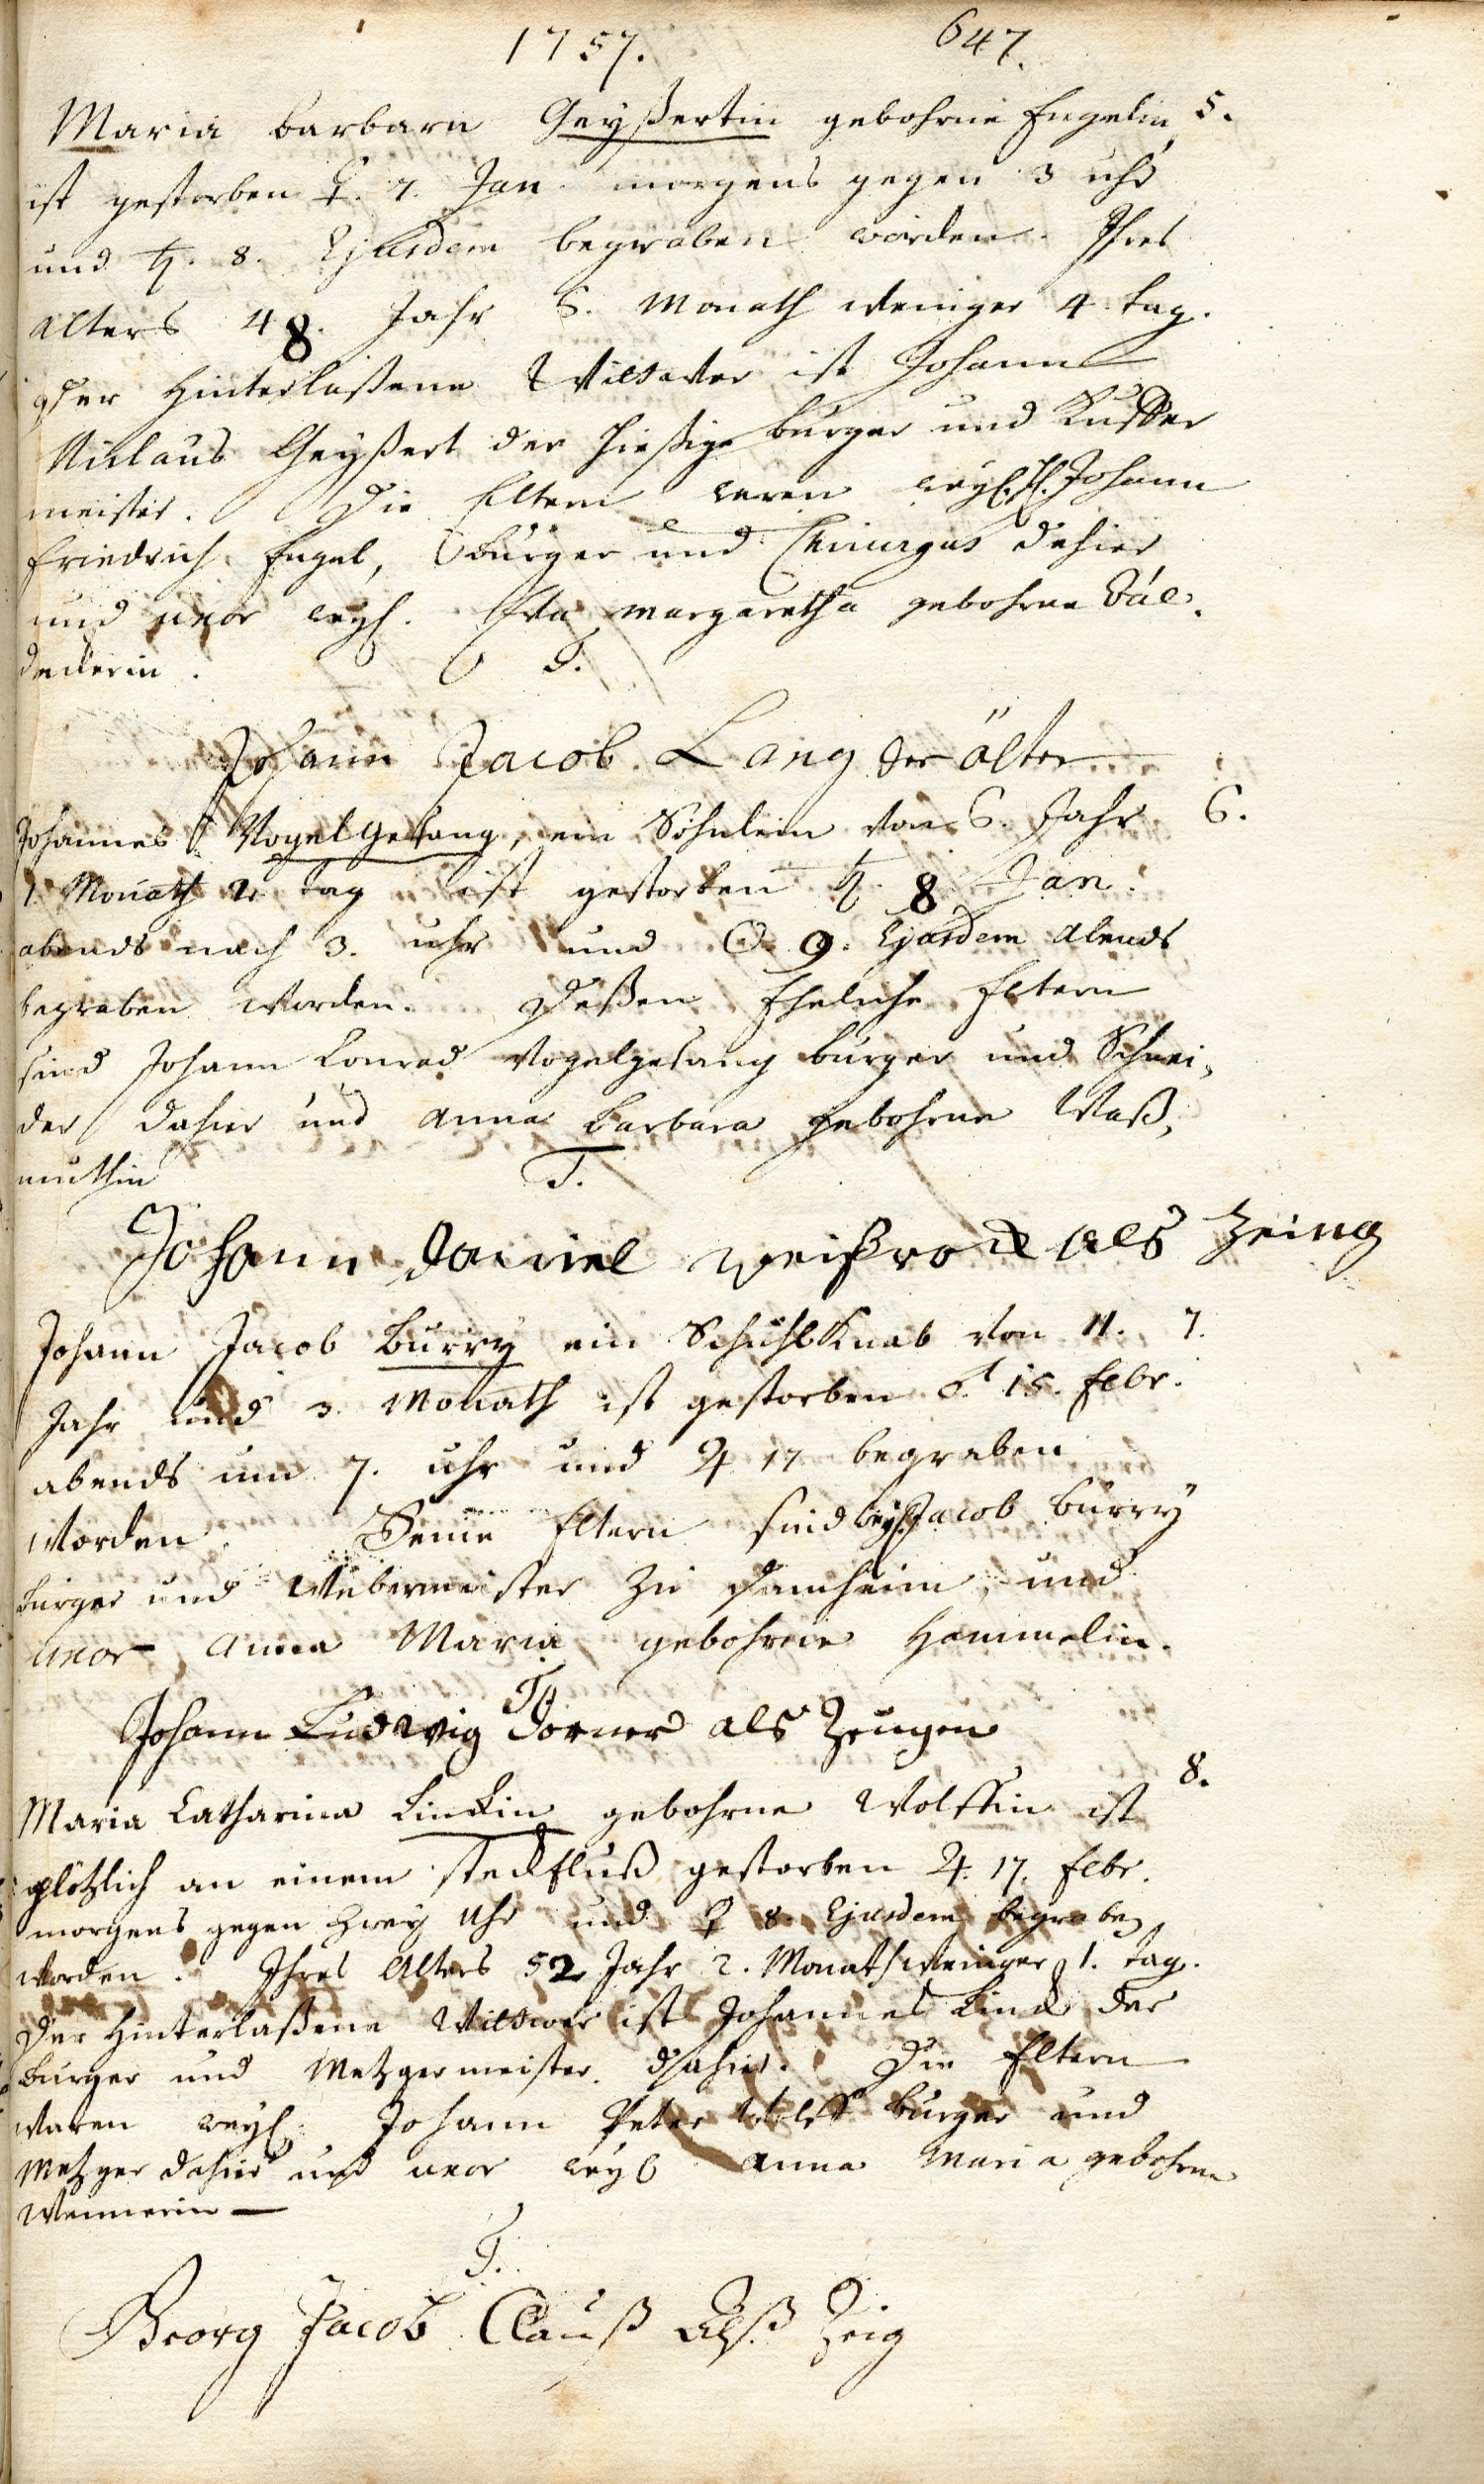 1757. 647.
Maria Barbara Geyßertin gebohrne Engelin 5.
ist gestorben ♀. 7. Jan. morgens gegen 3 uhr
und ♄. 8. Ejusdem begraben worden. Ihres
alters 48. Jahr 6. Monath weniger 4 tag.
Der Hinterlaßene Wittwer ist Johann
Niclaus Geyßert der hießige burger und
meister. Die Eltern waren weyl. H. Johann
Friedrich Engel, Burger und Chirurgus dahier
und uxor weyl. Eva Margaretha gebohrne

T.
Johann Jacob Lang der älter
Johannes Vogelgesang, ein Söhnlein von 6. Jahr 6.
1. Monath 2. tag ist gestorben ♄ 8 Jan.
abends nach 3. uhr und ☉ 9. Ejusdem abends
begraben worden. Deßen Eheliche Eltern
sind Johann Conrad Vogelgesang burger und Schnei,
der dahier und Anna Barbara gebohrne Waß,
muthin
T.
Johann Daniel Weißrock als Zeing
Johann Jacob Burry ein Schuhlknab von 11. 7.
Jahr und 3. Monath ist gestorben ♂. 15. Febr.
abends um 7. uhr und ♃ 17 begraben
worden. Seine Eltern sind weyl. Jacob Burry
Burger und Webermeister zu Damheim, und
uxor Anna Maria gebohrne Hammelin.
T.
Johann Ludwig Dorner als Zeugen
8.
Maria Catharina Linckin gebohrne Wolffin ist
plötzlich an einem steckfluß gestorben ♃. 17. Febr.
morgens gegen zwey Uhr und ♀ 8. Ejusdem begraben
worden. Ihres Alters 52 Jahr 2. Monath weniger 1. tag.
Der Hinterlaßene Wittwer ist Johannes Linck der
Burger und Metzgermeister dahier. Die Eltern
waren weyl. Johann Peter Wolff burger und
Metzger dahier und uxor weyl Anna Maria gebohrne
Wennerin —
T.
Georg Jacob Clauß alß Zeig